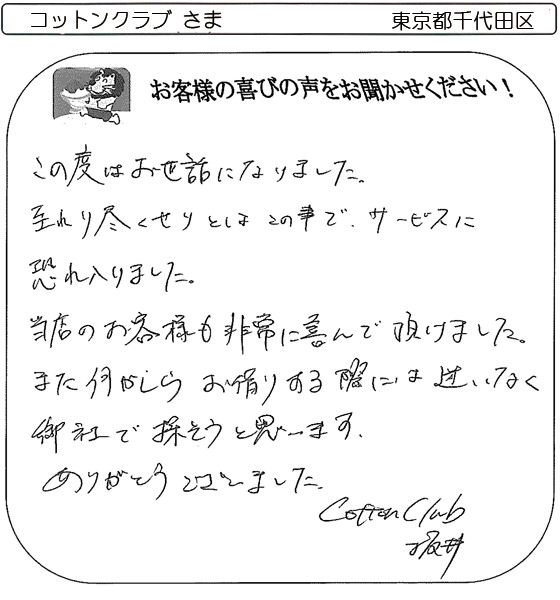 コットンクラブ さま
東京都千代田区
お客様の喜びの声をお聞かせください!
この度はお世話になりました。
至れり尽くせりとはこの事で、サービスに
恐れ入りました。
当店のお客様も非常に喜んで頂けました。
また何かしらお借りする際には迷いなく
御社で探そうと思います。
ありがとうございました。
Cotton Club
坂井